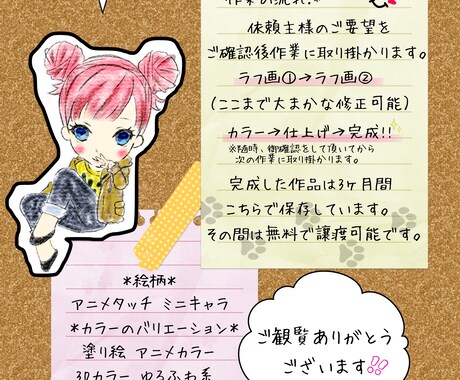 作業の流れ
依頼主様のご要望を
ご確認後作業に取り掛かります。
ラフ画①→ラフ画②
(ここまで大まかな修正可能)
カラー→仕上げ→完成!!
※随時、御確認をして頂いてから
次の作業に取り掛かります。
完成した作品は3ヶ月間
こちらで保存しています。
その間は無料で譲渡可能です。
*絵柄*
アニメタッチ ミニキャラ
*カラーのバリエーション*
塗り絵 アニメカラー
3Dカラー ゆるふわ系
ご観覧ありがとう
ございます!!